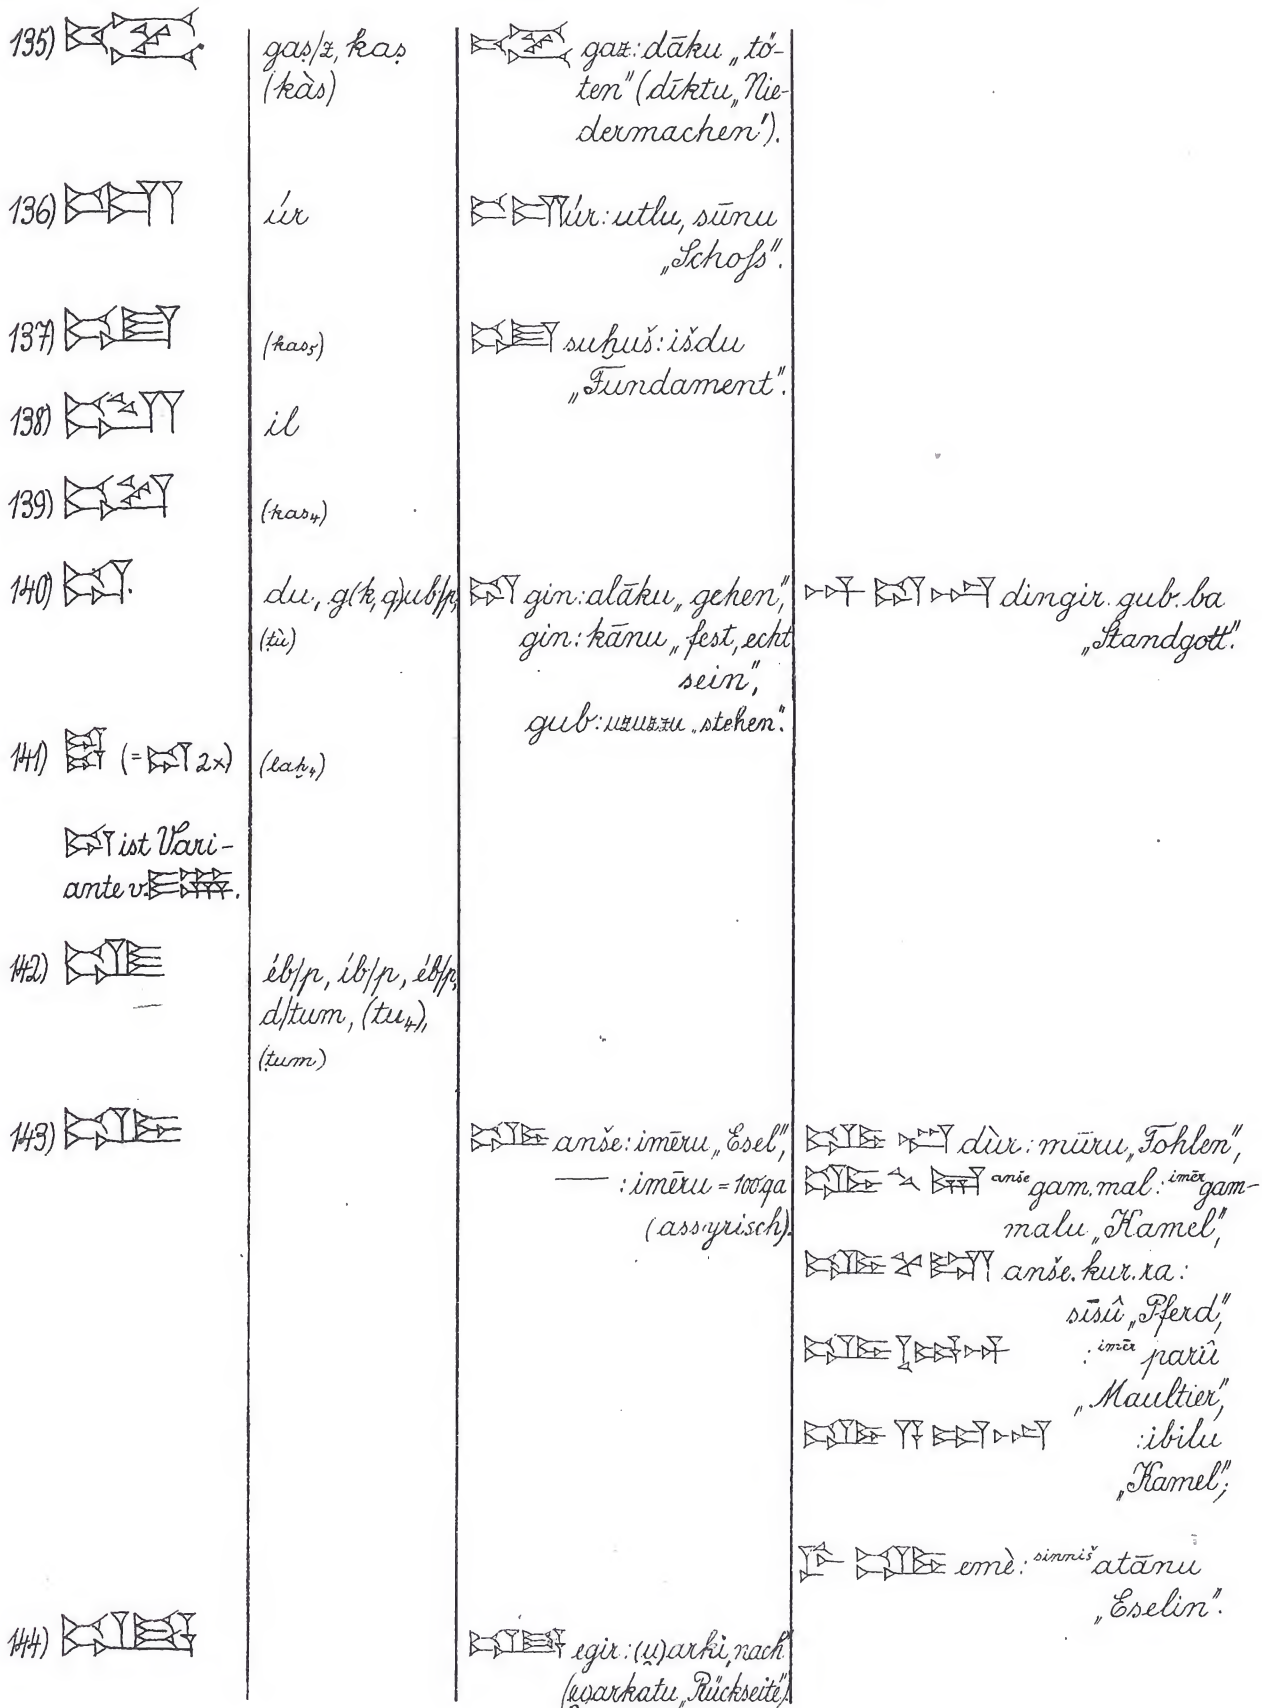 135) 𒄤
gaṣ/z, kaṣ
(kàs)
𒄤 gaz: dāku „tö-
ten" (dīktu „Nie-
dermachen").
136) 𒌫
úr
𒌫 úr: utlu, sūnu
„Schoß".
137)
(kas₅)
suḫuš: išdu
„Fundament".
138) 𒅋
il
139)
(kas₄)
140) 𒁺.
du, g(k,q)ub/p,
(ṭù)
𒁺 gin: alāku „gehen",
gin: kānu „fest, echt
sein",
gub: uzuzzu „stehen".
𒀭 𒁺 𒁀 dingir.gub.ba
„Standgott".
141) (= 𒁺 2x)
(laḫ₄)
ist Vari-
ante v.
142) 𒌈
éb/p, íb/p, éb/p,
d/tum, (tu₄),
(ṭum)
143) 𒀲
𒀲 anše: imēru „Esel",
— : imēru = 100 qa
(assyrisch).
𒀲 dùr: mūru „Fohlen",
𒀲 𒃵 𒂷 anše gam.mal: imēr gam-
malu „Kamel",
𒀲 𒆳 𒊏 anše.kur.ra:
sīsû „Pferd",
𒀲 : imēr parû
„Maultier",
𒀲 𒀀 𒀊 𒁀 : ibilu
„Kamel";
emè: sinniš atānu
„Eselin".
144) 𒂕
𒂕 egir: (u̯)arki „nach"
(u̯)arkatu „Rückseite")